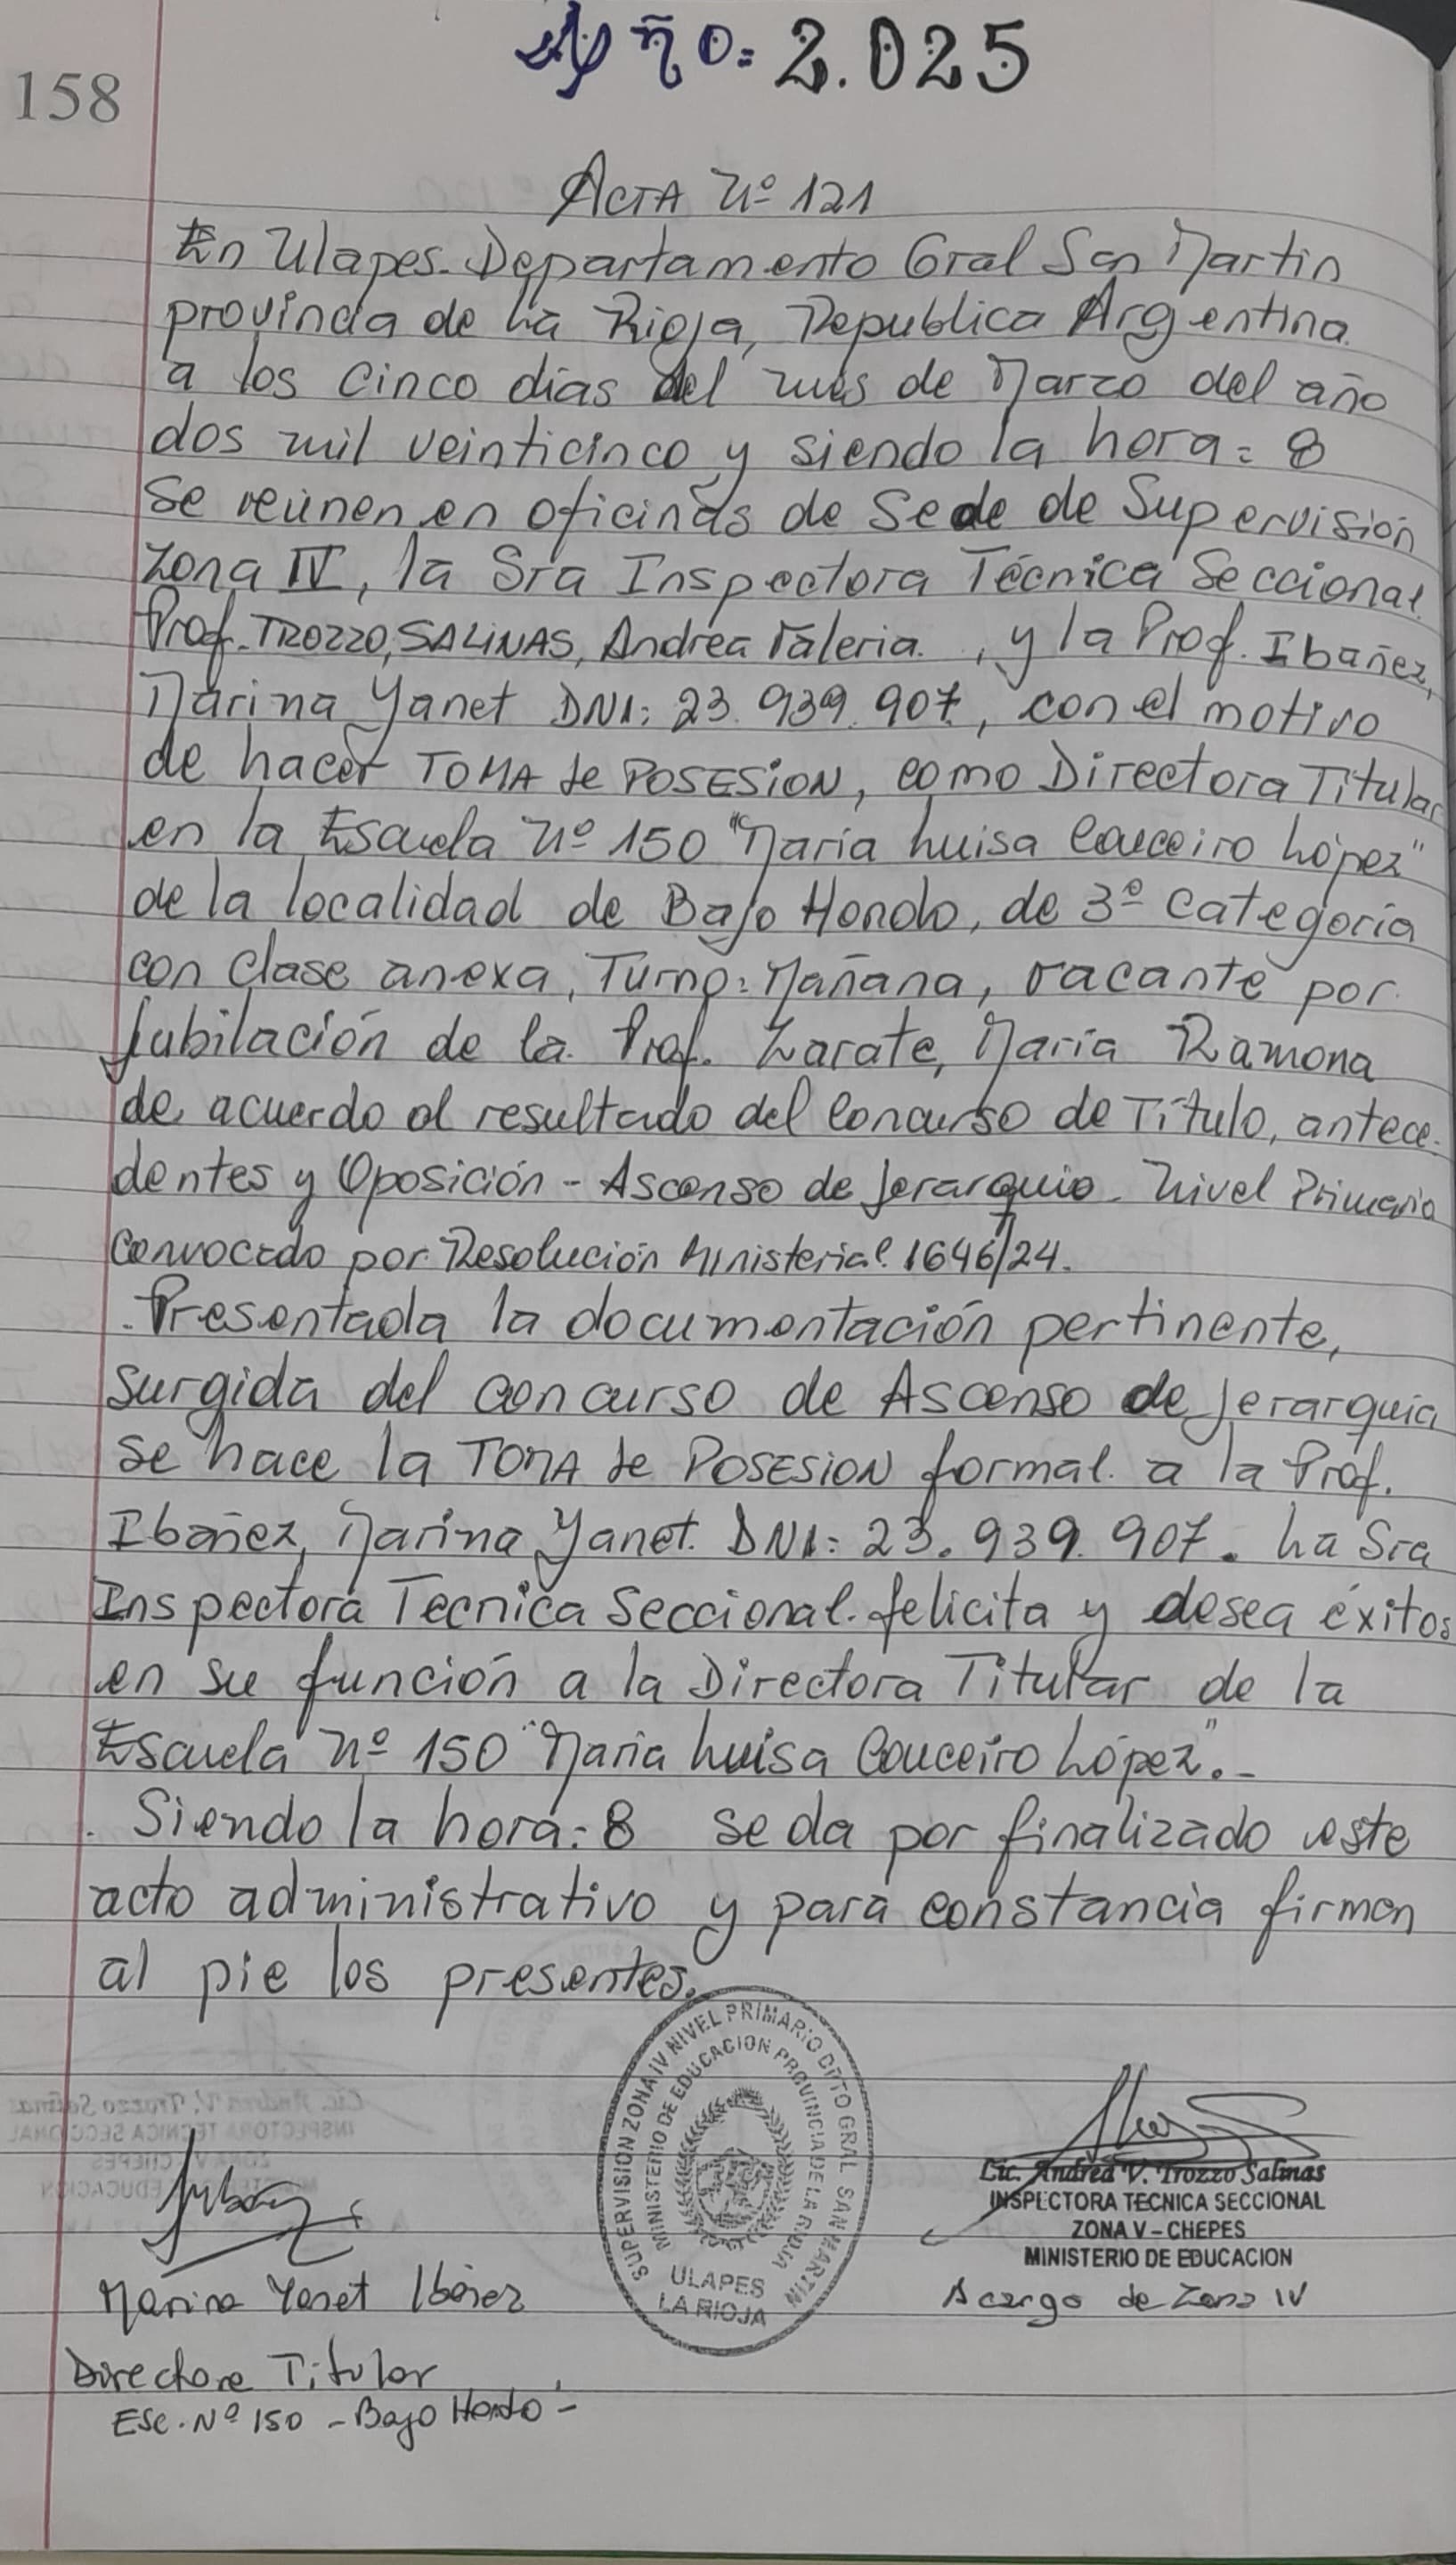 Año = 2.025
158
ACTA Nº 121
En Ulapes. Departamento Gral San Martin
provincia de La Rioja, Republica Argentina.
a los cinco días del mes de Marzo del año
dos mil veinticinco y siendo la hora = 8
se reúnen en oficinas de Sede de Supervisión
Zona IV, la Sra Inspectora Técnica Seccional.
Prof. TROZZO, SALINAS, Andrea Valeria. , y la Prof. Ibañez,
Marina Yanet DNI: 23.939.907, con el motivo
de hacer TOMA de POSESION, como Directora Titular
en la Escuela Nº 150 "María Luisa Couceiro López"
de la localidad de Bajo Hondo, de 3º categoría
con clase anexa, Turno: Mañana, vacante por
Jubilación de la Prof. Zarate, María Ramona
de acuerdo al resultado del Concurso de Título, antece-
dentes y Oposición - Ascenso de Jerarquia. Nivel Primario
Convocado por Resolución Ministerial 1646/24.
. Presentada la documentación pertinente,
surgida del concurso de Ascenso de Jerarquia
se hace la TOMA de POSESION formal a la Prof.
Ibañez, Marina Yanet. DNI: 23.939.907. La Sra
Inspectora Tecnica Seccional felicita y desea éxitos
en su función a la Directora Titular de la
Escuela Nº 150 "María Luisa Couceiro López".-
. Siendo la hora: 8 se da por finalizado este
acto administrativo y para constancia firman
al pie los presentes.
SUPERVISION ZONA IV NIVEL PRIMARIO DPTO GRAL SAN MARTIN
MINISTERIO DE EDUCACION PROVINCIA DE LA RIOJA
ULAPES
LA RIOJA
Marina Yanet Ibañez
Directora Titular
Esc. Nº 150 - Bajo Hondo -
Lic. Andrea V. Trozzo Salinas
INSPECTORA TECNICA SECCIONAL
ZONA V - CHEPES
MINISTERIO DE EDUCACION
A cargo de Zona IV